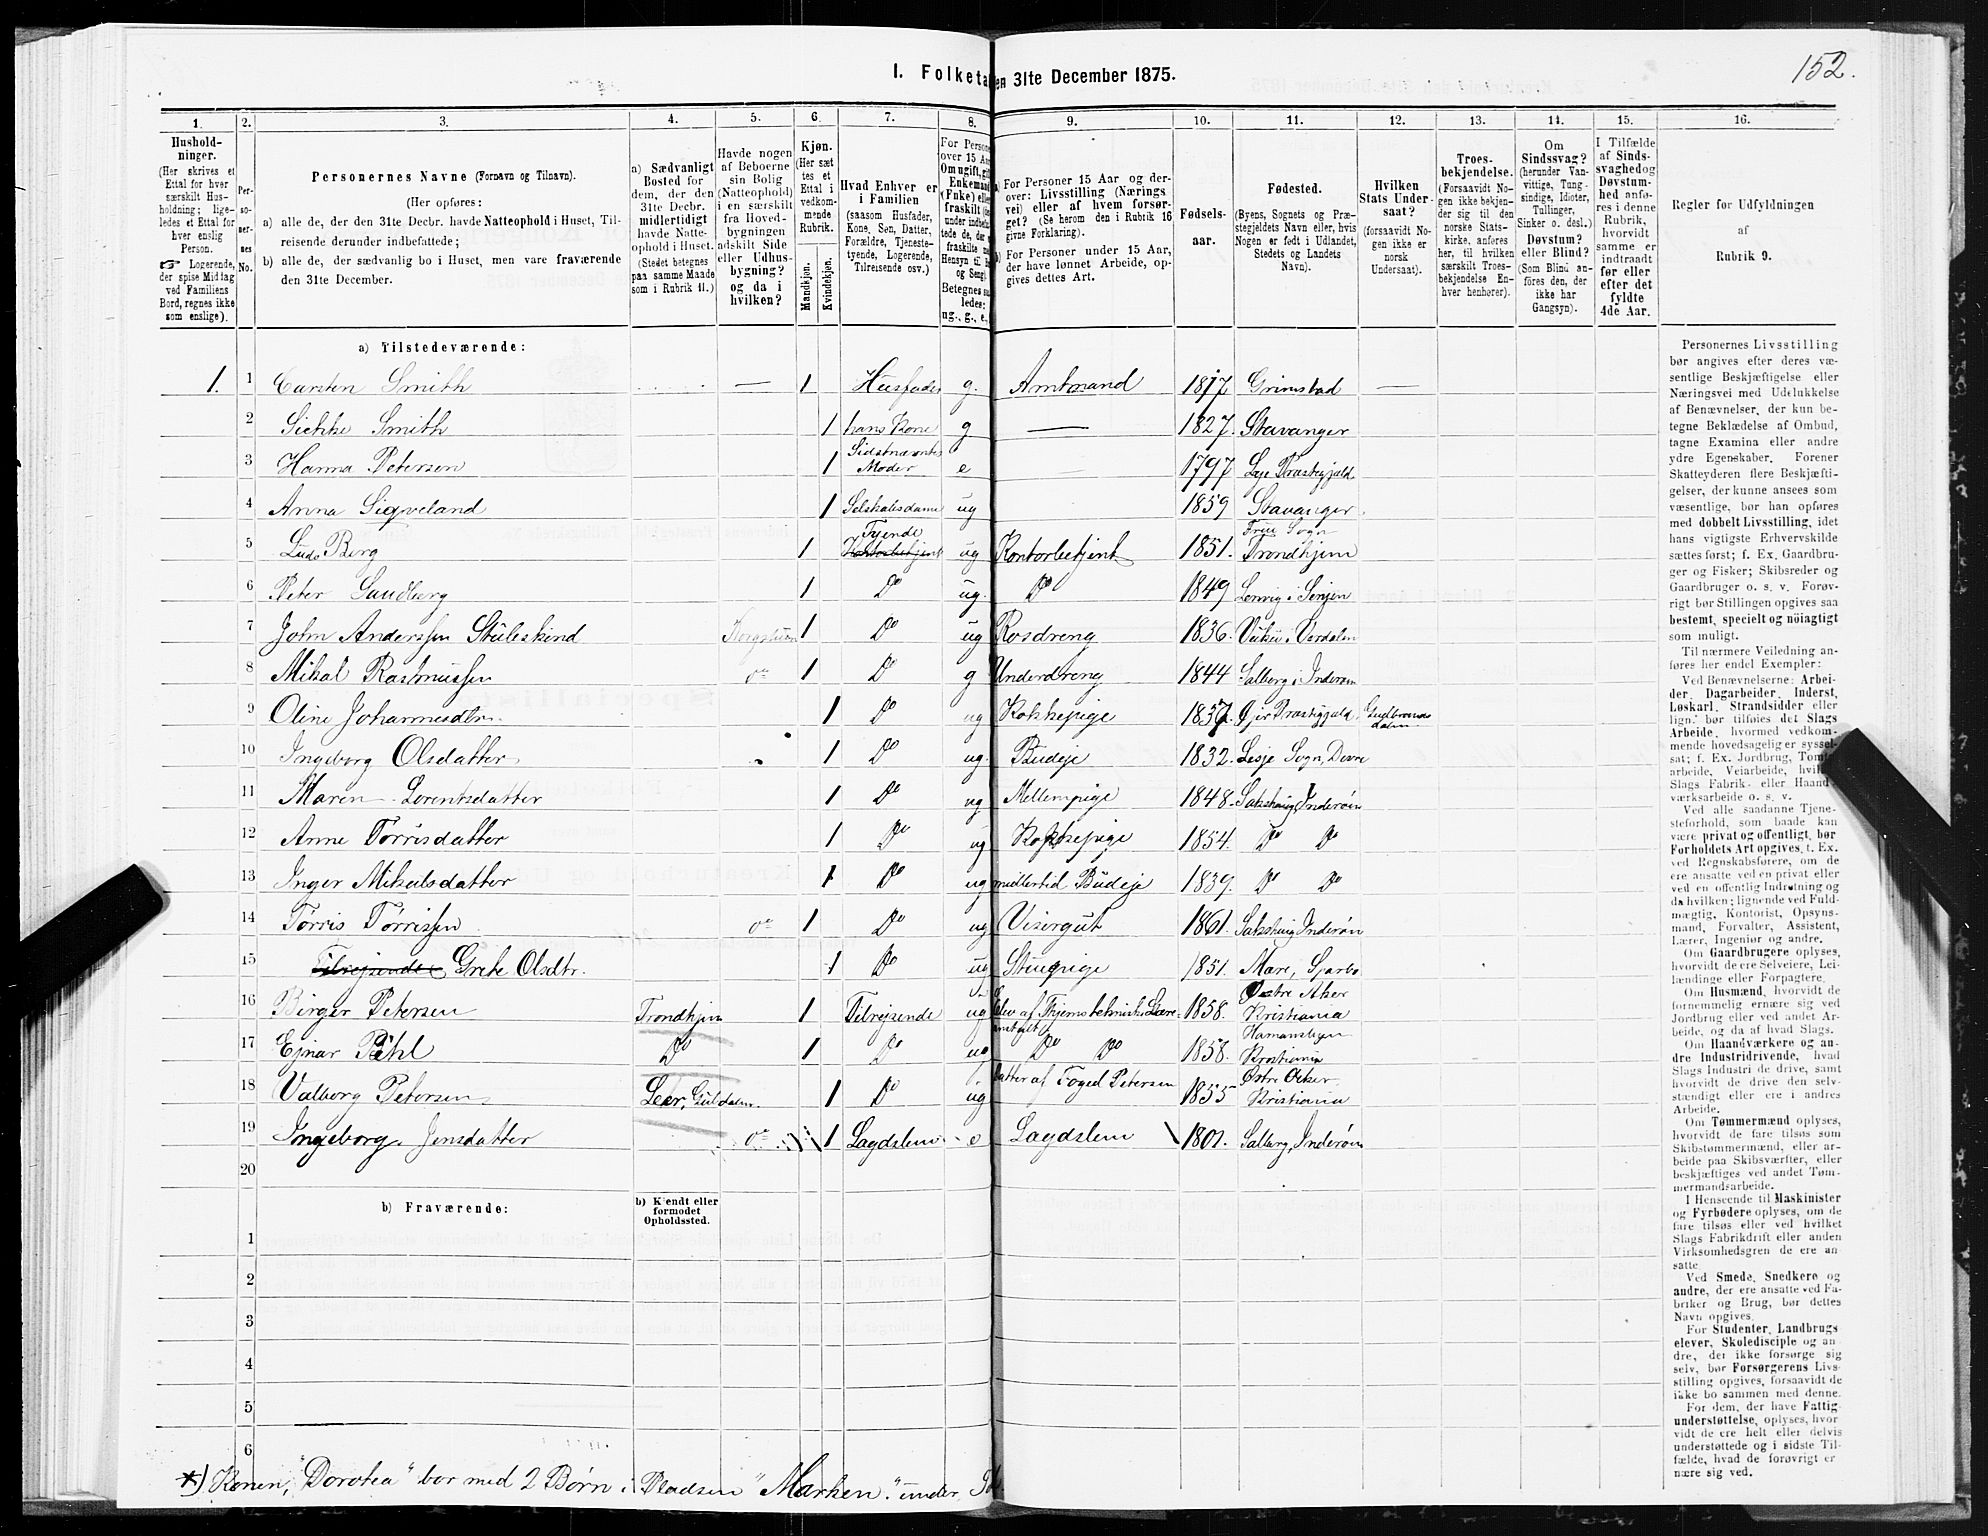 152.
I. Folketa
en 31te December 1875.
1.
2.
3.
4.
5.
6.
7.
8.
9.
10.
11.
12.
13.
14.
15.
16.
Hushold-
ninger.
(Her skrives et
Ettal for hver
særskilt Hus-
holdning; lige-
ledes et Ettal for
hver enslig
Person.
☞ Logerende,
der spise Middag
ved Familiens
Bord, regnes ikke
som enslige).
Per-
so-
ner-
nes
No.
Personernes Navne (Fornavn og Tilnavn).
(Her opføres:
a) alle de, der den 31te Decbr. havde Natteophold i Huset, Til-
reisende derunder indbefattede;
b) alle de, der sædvanlig bo i Huset, men vare fraværende
den 31te December.
a) Sædvanligt
Bosted for
dem, der den
31te Decbr.
midlertidigt
havde Natte-
ophold i Huset.
(Stedet betegnes
paa samme Maade
som i Rubrik 11.)
Havde nogen
af Beboerne
sin Bolig
(Natteophold)
i en særskilt
fra Hoved-
bygningen
adskilt Side
eller Udhus-
bygning?
og da i
hvilken?
Kjøn.
(Her sæt-
tes et
Ettal i
vedkom-
mende
Rubrik.
Mandkjøn.
Kvindekjøn.
Hvad Enhver er
i Familien
(saasom Husfader,
Kone, Søn, Datter,
Forældre, Tjeneste-
tyende, Logerende,
Tilreisende osv.)
For Person
over 15 Aar
Om ugift, gif
Enkemand
(Enke) eller
fraskilt
ug., g., e.,
For Personer 15 Aar og der-
over: Livsstilling (Nærings
vei) eller af hvem forsør-
get? (Se herom den i Rubrik 16
givne Forklaring).
b) For Personer under 15 Aar,
der have lønnet Arbeide, op-
gives dettes Art.
Fødsels-
aar.
Fødested.
(Byens, Sognets og Præ-
stegjeldets Navn eller, hvis
Nogen er født i Udlandet,
Stedets og Landets
Navn).
Hvilken
Stats Under-
saat?
(forsaavidt No-
gen ikke er
norsk
Undersaat).
Troes-
bekjendelse.
(Forsaavidt No-
gen ikke bekjen-
der sig til den
norske Stats-
kirke, anføres
her, til hvilken
særskilt Troes-
bekjendelse En-
hver henhører).
Om
Sindssvag?
(herunder Van-
vittige, Tung-
sindige, Idioter,
Tullinger,
Sinker o. desl.)
Døvstum?
eller Blind?
(Som Blind an-
føres den, der
ikke har
Gangsyn).
I Tilfælde
af Sinds-
svaghed og
Døvstum-
hed anfø-
res i denne
Rubrik,
hvorvidt
samme er
indtraadt
før eller
efter det
fyldte
4de Aar.
Regler for Udfyldningen
af
Rubrik 9.
a) Tilstedeværende:
1. 1 Carsten Smith — 1 Husfader g. Amtmand 1817 Grimstad —
2 Sickke Smith 1 hans Kone g — 1827. Stavanger
3 Hanna Petersen 1 Sidstnævntes Moder e 1797 Præstegjeld
4 Anna Sigveland 1 Selskabsdame ug 1859 Stavanger
5 Berg 1 Tjende Kontorbetjent ug Kontorbetjent 1851. Frue Sogn Trondhjem
6 Peter Sundberg 1 Do ug. Do 1849 Lenvig i Senjen
7 John Anderssen Stuleskind 1 Do ug Rosdreng 1836. Vuku i Verdalen
8 Mikal Rasmussen do 1 Do g Underdreng 1844 Salberg i Inderøen
9 Oline Johannesdtr. 1 Do ug Kokkepige 1837. Præstegjeld. Gudbrandsdalen
10 Ingeborg Olsdatter 1 Do ug. Budeje 1832. Lesje Sogn, Dovre
11 Maren Lorentsdatter 1 Do ug Mellempige 1848. Sakshaug Inderøen
12 Anne Tørrisdatter 1 Do ug Kokkepige 1854. Do Do
13 Inger Mikalsdatter 1 Do ug midlertid Budeje 1839. Do Do
14 Tørris Tørrissen do 1 Do ug Visergut 1861. Sakshaug Inderøen
15 Tilrejsende Grete Olsdtr. 1 Do ug Stuepige 1851. Mare, Sparbo
16 Birger Petersen Trondhjem 1 Tilrejsende ug Elev af Thjems tekniske Læreanstalt 1858. Østre Aker Kristiania
17 Ejnar Pihl Do 1 Do ug Do Do 1858. Kristiania
18 Valborg Petersen Leer, Guldalen. 1 Do ug Datter af Foged Petersen 1855 Østre Aker Kristiania
19 Ingeborg Jensdatter do 1 Lagdslem e Lagdslem 1801. Salberg, Inderøen
20
b) Fraværende:
b) Kjendt eller
formodet
Opholdssted.
1
2
3
4
5
6
*) Konen, "Dorotea" bor med 2 Børn i Pladsen "Marken" under
Personernes Livsstilling
bør angives efter deres væ-
sentlige Beskjæftigelse eller
Næringsvei med Udelukkelse
af Benævnelser, der kun be-
tegne Beklædelse af Ombud,
tagne Examina eller andre
ydre Egenskaber. Forener
Skatteyderen flere Beskjæfti-
gelser, der kunne ansees som
væsentlige, bør han opføres
med dobbelt Livsstilling, idet
hans vigtigste Erhvervskilde
sættes først; f. Ex. Gaardbru-
ger og Fisker; Skibsreder og
Gaardbruger o. s. v. Forøv-
rigt bør Stillingen opgives saa
bestemt, specielt og nöiagtigt
som muligt.
Til nærmere Veiledning an-
føres her endel Exempler:
Ved Benævnelserne: Arbei-
der, Dagarbeider, Inderst,
Løskarl, Strandsidder eller
lign. bør tilføies det Slags
Arbeide, hvormed vedkom-
mende hovedsagelig er syssel-
sat; f. Ex. Jordbrug, Tomte-
arbeide, Veiarbeide, hvilket
Slags Fabrik- eller Haand-
værksarbeide o. s. v.
Ved alle saadanne Tjene-
steforhold, som baade kan
være privat og offentligt, bør
Forholdets Art opgives, t. Ex.
ved Regnskabsførere, om de
ere ansatte ved en privat eller
ved en offentlig Indretning og
da hvilken; lignende ved Fuld-
mægtig, Kontorist, Opsyns-
mand, Forvalter, Assistent,
Lærer, Ingeniør og andre.
Om Gaardbrugere oplyses,
hvorvidt de ere Selveiere, Lei-
lændinge eller Forpagtere.
Om Husmænd, hvorvidt de
fornemmelig ernære sig ved
Jordbrug eller ved andet Ar-
beide, og da af hvad Slags.
Om Haandværkere og an-
dre Industridrivende, hvad
Slags Industri de drive, samt
hvorvidt de drive den selv-
stændigt eller ere i andres
Arbeide.
Om Tømmermænd oplyses,
hvorvidt de fare tilsøs som
Skibstømmermænd, eller ar-
beide paa Skibsværfter, eller
beskjæftiges ved andet Tøm-
mermandsarbeide.
I Henseende til Maskinister
og Fyrbødere oplyses, om de
fare tilsøs eller ved hvilket
Slags Fabrikdrift eller anden
Virksomhedsgren de ere an-
satte
Ved Smede, Snedkere og
andre, der ere ansatte ved Fa-
briker og Brug, bør dettes
Navn opgives.
For Studenter, Landbrugs
elever, Skoledisciple og an-
dre, der ikke forsørge sig
selv, bør Forsørgerens Livs-
stilling opgives, forsaavidt de
ikke bo sammen med denne.
For dem, der have Fattig-
understøttelse, oplyses, hvor
vidt de ere helt eller delvis
understøttede og i sidste Til-
fælde, hvad de forøvrigt er
nære sig ved.